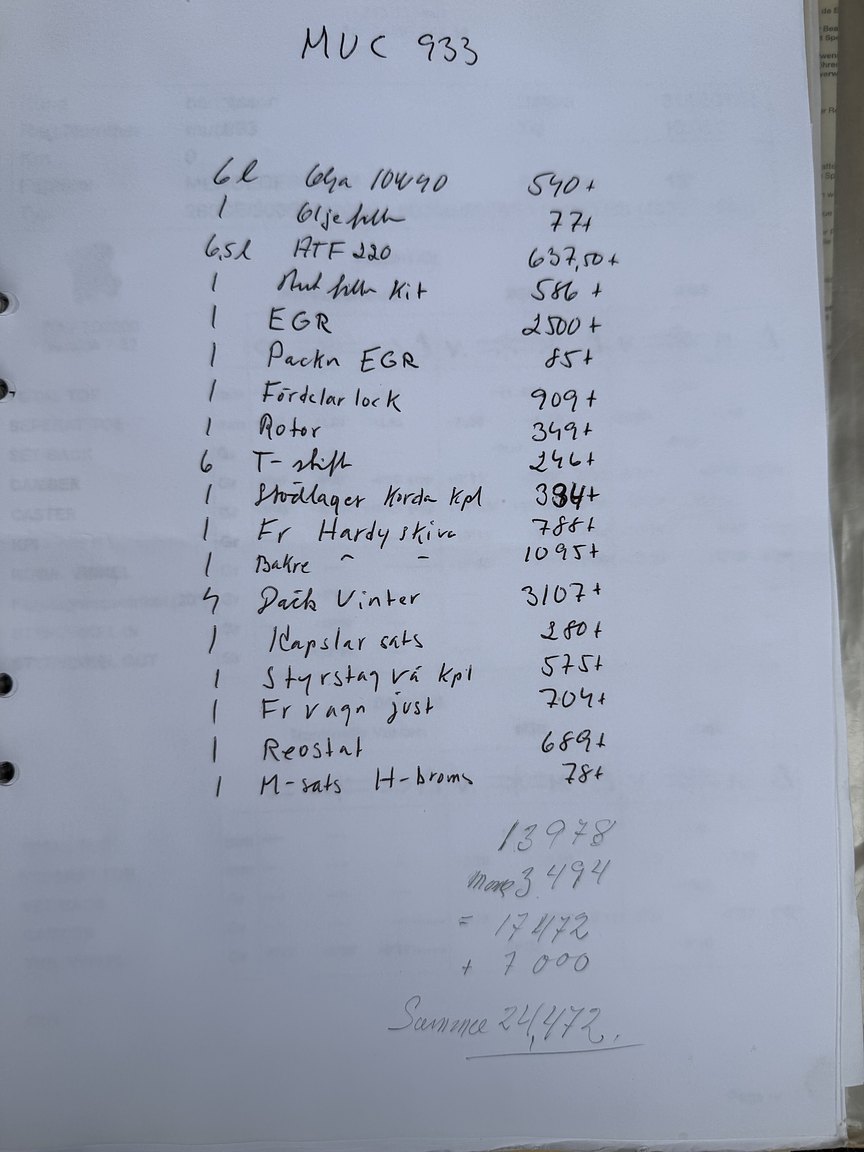 MUC 933
6 l Olja 10W40 540+
1 Oljefilter 77+
6,5 l ATF 220 637,50+
1 Aut filter Kit 586 +
1 EGR 2500+
1 Packn EGR 85+
1 Fördelarlock 909+
1 Rotor 349+
6 T-stift 246+
1 Stödlager Korda Kpl
1 Fr Hardyskiva 788+
1 Bakre ~ – 1095+
4 Däck Vinter 3107+
1 Kapslar sats 280+
1 Styrstag vä Kpl 575+
1 Fr vagn just 704+
1 Reostat 689+
1 M-sats H-broms 78+
13978
moms 3 494
= 17472
+ 7 000
Summa 24,472.